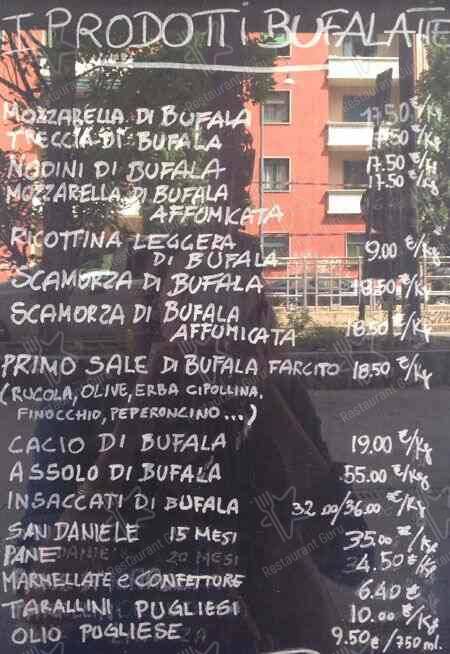 I PRODOTTI BUFALATTE
MOZZARELLA DI BUFALA 17.50 €/Kg
TRECCIA DI BUFALA 17.50 €/Kg
NODINI DI BUFALA 17.50 €/Kg
MOZZARELLA DI BUFALA 17.50 €/Kg
AFFUMICATA
RICOTTINA LEGGERA
DI BUFALA 9.00 €/Kg
SCAMORZA DI BUFALA 18.50 €/Kg
SCAMORZA DI BUFALA
AFFUMICATA 18.50 €/Kg
PRIMO SALE DI BUFALA FARCITO 18.50 €/Kg
(RUCOLA, OLIVE, ERBA CIPOLLINA,
FINOCCHIO, PEPERONCINO...)
CACIO DI BUFALA 19.00 €/Kg
ASSOLO DI BUFALA 55.00 €/Kg
INSACCATI DI BUFALA 32.00/36.00 €/Kg
SAN DANIELE 15 MESI 35.00 €/Kg
PANE 4.50 €/Kg
MARMELLATE e CONFETTURE 6.40 €
TARALLINI PUGLIESI 10.00 €/Kg
OLIO PUGLIESE 9.50 €/750 ml.